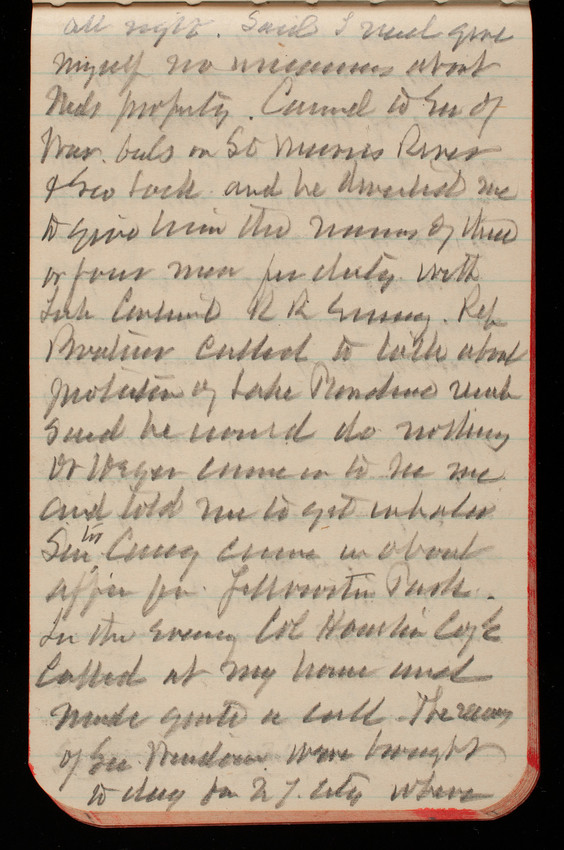 all right. Said I need give
myself no uneasiness about
Neds property. Carried to Sec of
War. bills on St Marries River
& Geo Lock and he directed me
to give him the names of three
or four men for duty with
Int Contint R R Survey. Rep
called to talk about
protection of Lake work
Said he would do nothing
Dr Wager came in to see me
and told me to get inhaler
Senator Casey came in about
affair for Yellowstone Park.
In the evening Col Hamlin Coyle
Called at my house and
made quite a call. The remains
of Sec Windom were brought
to day from N Y. City where